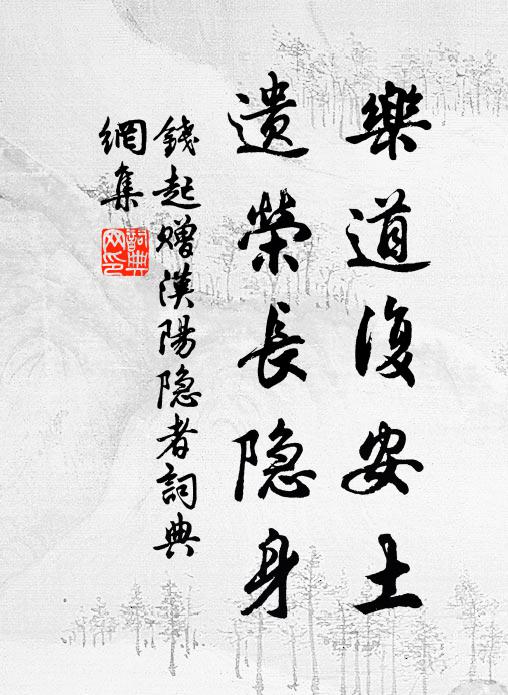 樂道復安土
遺榮長隐身
錢起贈漢陽隐者詞典
網集
詞典
网印